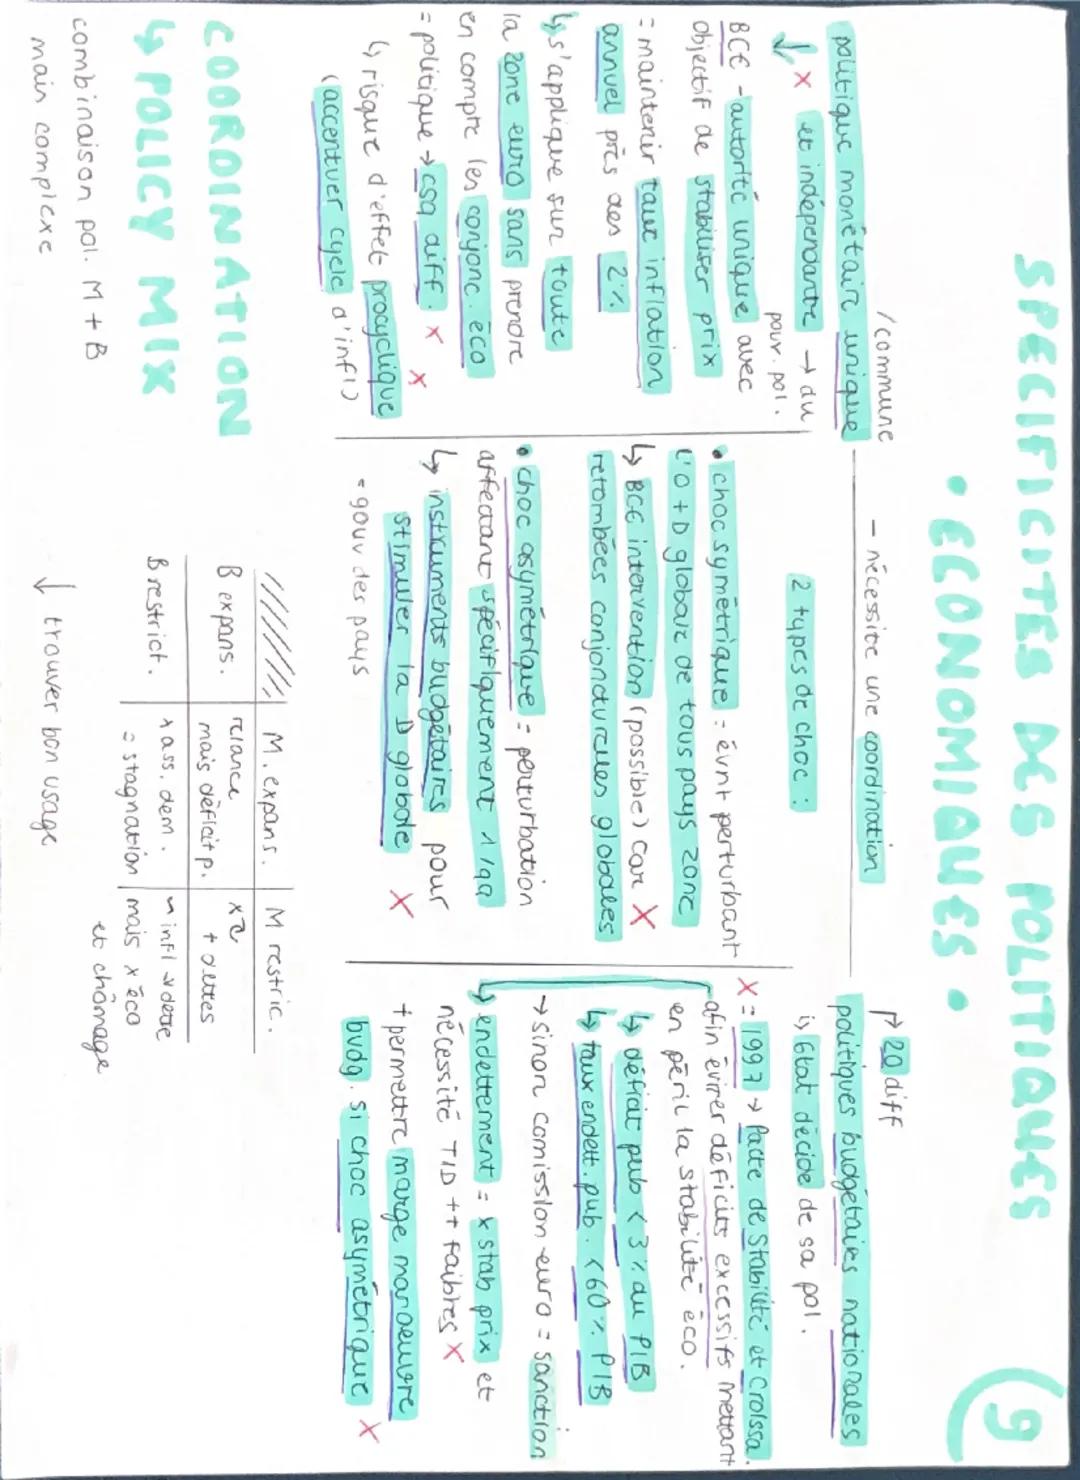 SPECIFICITES DES POLITIQUES
• ECONOMIQUES •
9
/commune
politique monétair unique
↓ x et indépendante → du
pouv. pol.
BCE - autorité unique avec
objectif de stabiliser prix
= maintenir taux inflation
annuel près des 2%
↳ s'applique sur toute
la zone euro sans prendre
en compte les conjonc. éco
= politique → csq diff. x
↳ risque d'effet procyclique x
(accentuer cycle d'infl)
- nécessite une coordination
2 types de choc :
• choc symétrique = évnt perturbant
l'O + D globale de tous pays zone
↳ BCE intervention (possible) car x
retombées conjoncturelles globales
• choc asymétrique = perturbation
affectant spécifiquement 1/qq
↳ instruments budgétaires pour
stimuler la D globale x
= gouv des pays
↱ 20 diff
politiques budgétaires nationales
is État décide de sa pol.
x = 1997 → Pacte de Stabilité et Croissa.
afin éviter déficits excessifs mettant
en péril la stabilité éco.
↳ déficit pub < 3% du PIB
↳ taux endett. pub. < 60% PIB
→ sinon comission euro = sanction
↳ endettement = x stab prix et
nécessité TID ++ faibles x
+ permettre marge manoeuvre
budg. si choc asymétrique x
COORDINATION
↳ POLICY MIX
combinaison pol. M + B
mais complexe
M. expans. M restric.
B expans. relance
mais déficit p.
+ dettes
B restrict. + ass. dem.
= stagnation
infl ↘ dette
mais x éco
et chômage
↓ trouver bon usage